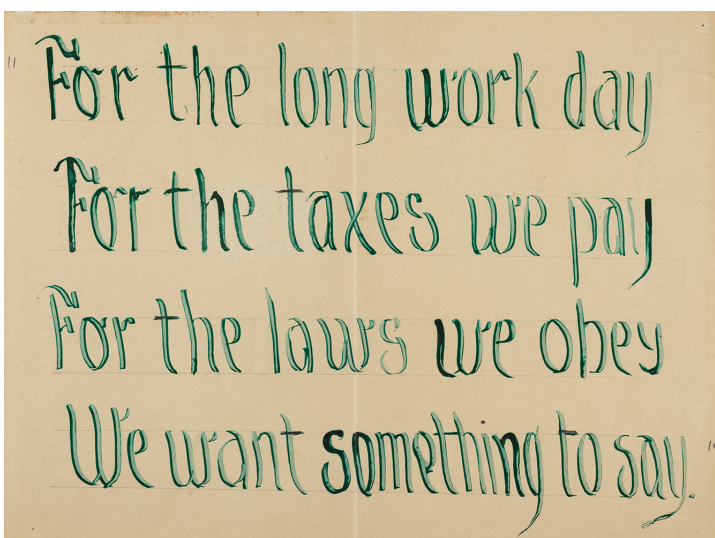 For the long work day
For the taxes we pay
For the laws we obey
We want something to say.